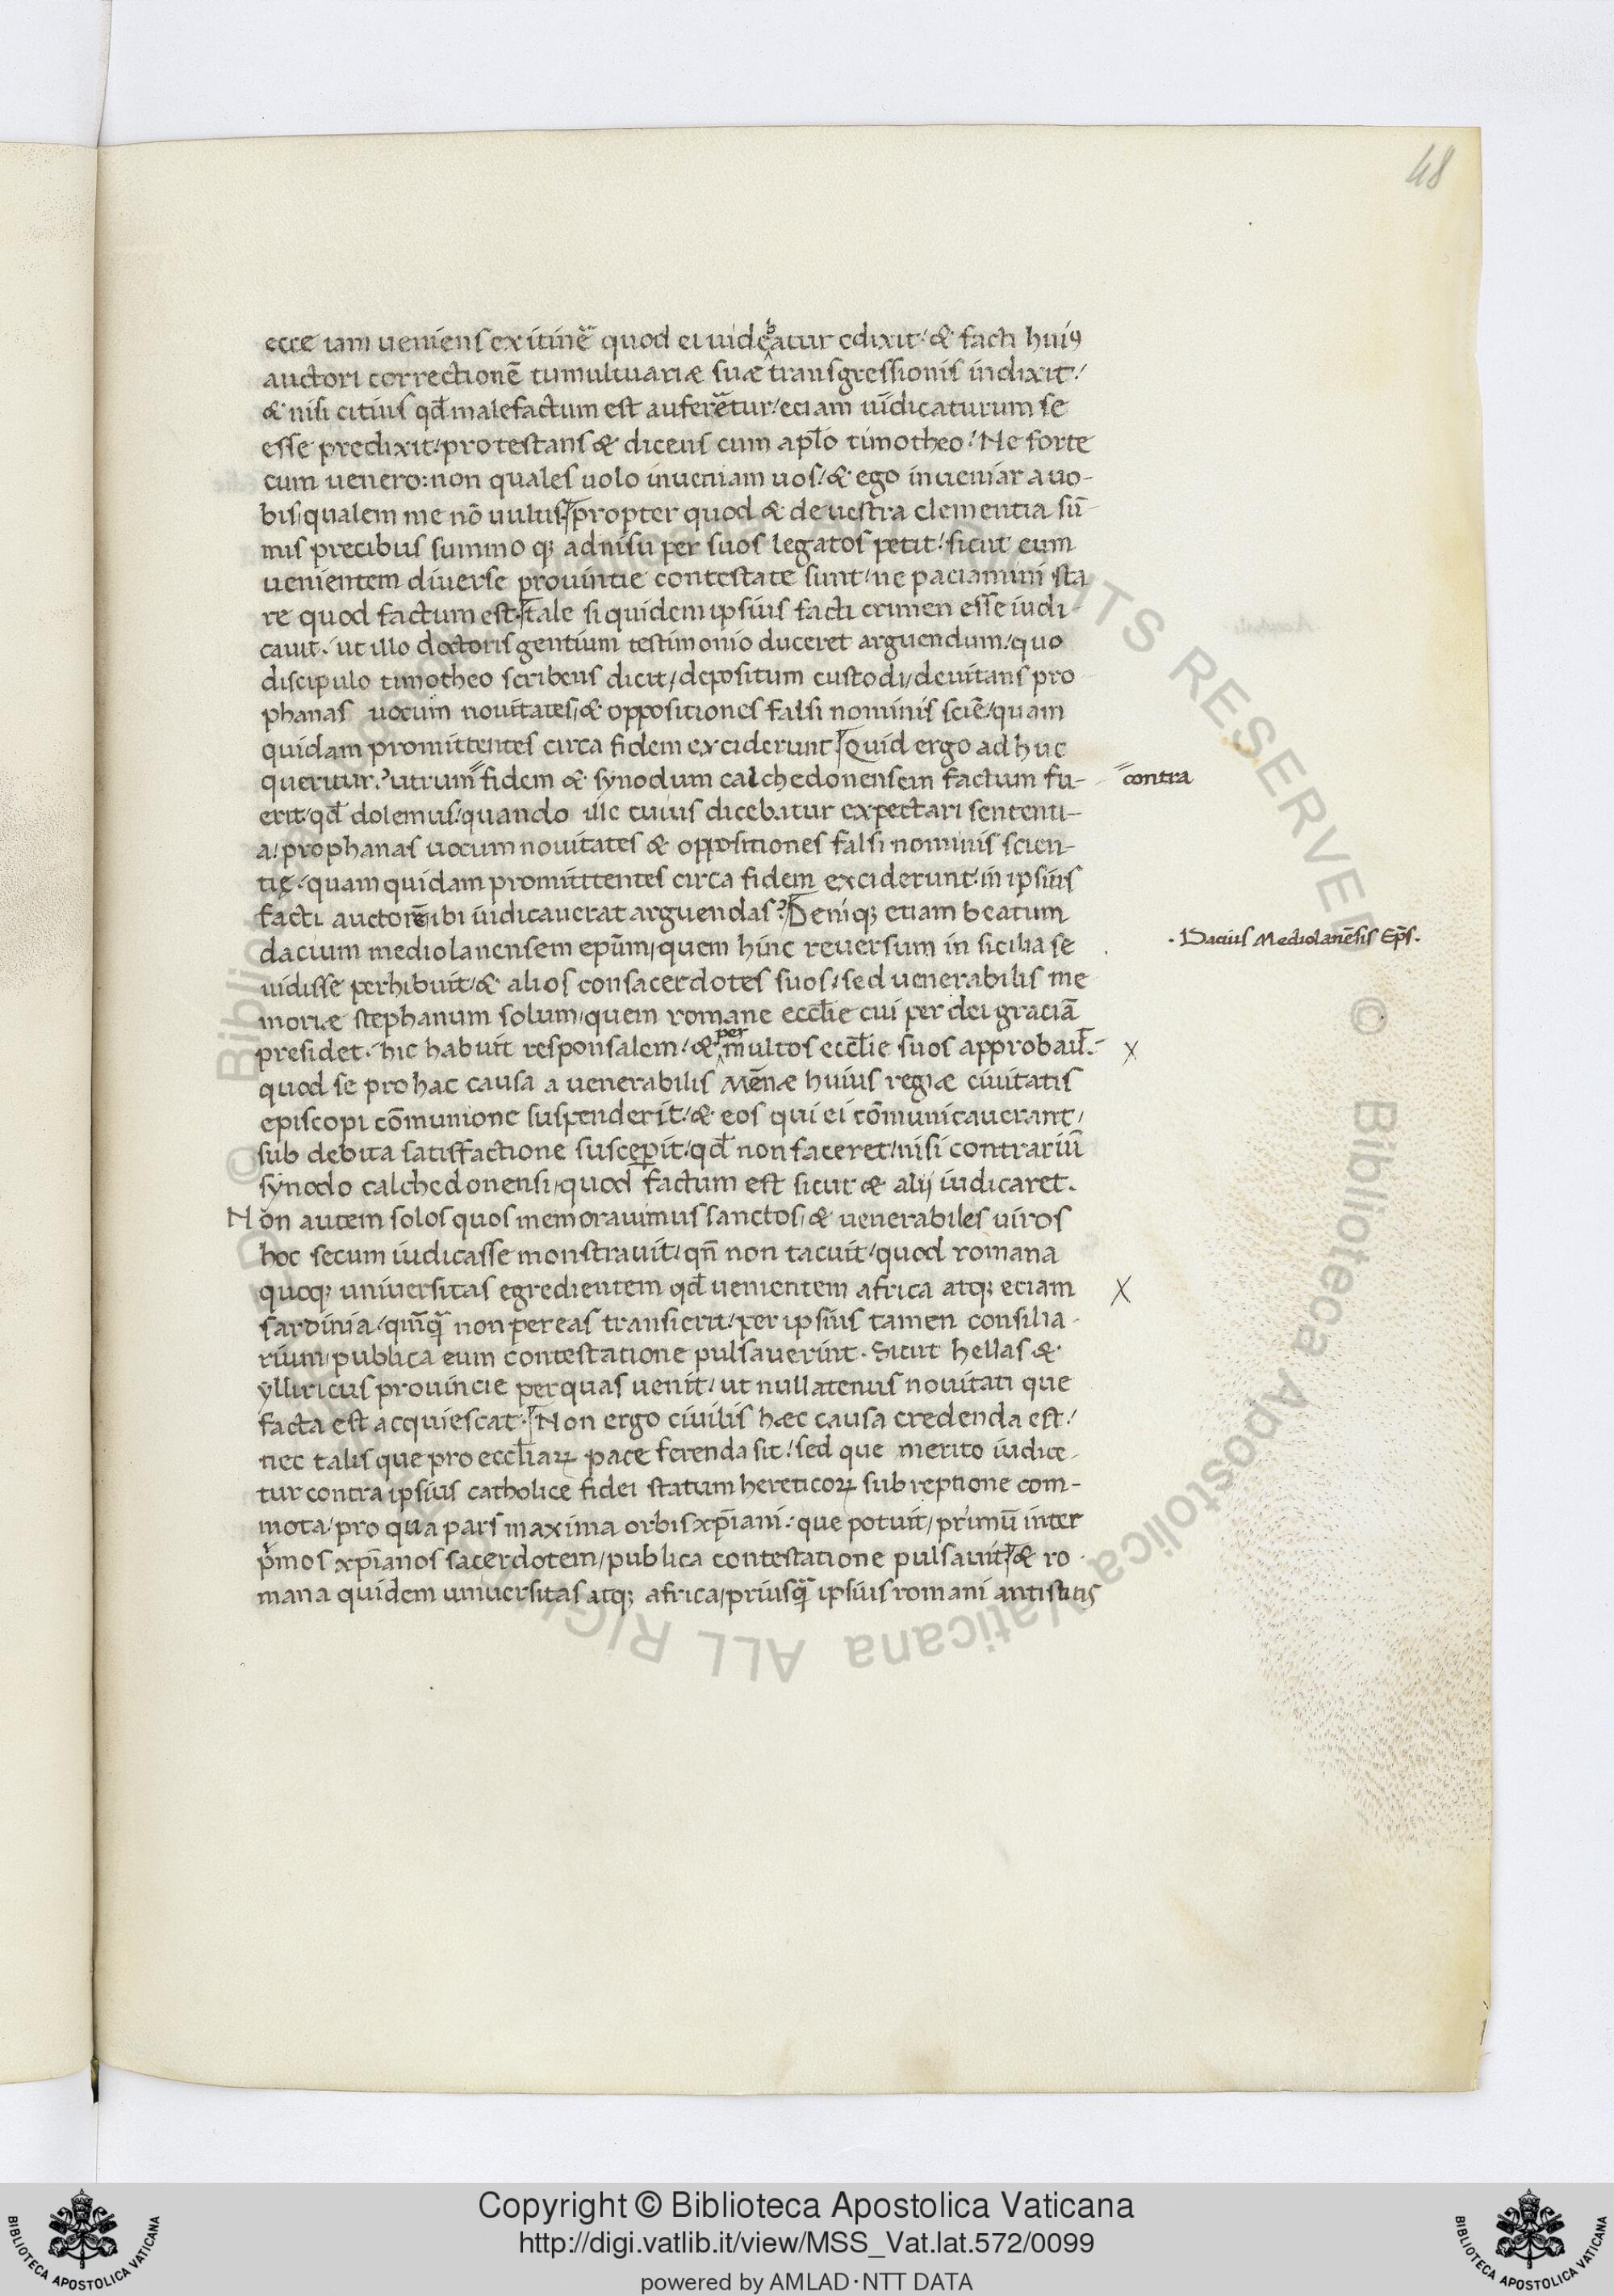 48
ecce iam ueniens ex itinere quod ei uidebatur edixit · & facti huiꝰ
auctori correctionē tumultuariæ suæ transgressionis indixit /
& nisi citius qđ malefactum est auferretur / eciam uīdicaturum se
esse predixit / protestans & dicens cum aplo timotheo / Ne forte
cum uenero: non quales uolo inueniam uos / & ego inueniar a uo-
bis / qualem me nō uultis / propter quod & de uestra clementia sū-
mis precibus summo qꝫ adnisu per suos legatos petit / sicut eum
uenientem diuerse prouintie contestate sunt / ne paciamini sta
re quod factum est · tale si quidem ipsius facti crimen esse iudi-
cauit / ut illo doctoris gentium testimonio duceret arguendum / quo
discipulo timotheo scribens dicit / depositum custodi / deuitans pro
phanas uocum nouitates / & oppositiones falsi nominis sciē / quam
quidam promittentes circa fidem exciderunt / Quid ergo ad huc
queritur ? utrum fidem & synodum calchedonensem factum fu-
contra
erit / qđ dolemus / quando ille cuius dicebatur expectari sententi-
a / prophanas uocum nouitates & oppositiones falsi nominis scien-
tię / quam quidam promittentes circa fidem exciderunt / in ipsius
facti auctorē ibi iudicauerat arguendas? Deniqꝫ etiam beatum
dacium mediolanensem epūm / quem hinc reuersum in sicilia se
· Dacius Mediolanēsis Ep̄s ·
uidisse perhibuit / & alios consacerdotes suos / sed uenerabilis me
moriæ stephanum solum / quem romane eccłie cui per dei graciā
presidet / hic habuit responsalem / & per multos eccłie suos approbait /
x
quod se pro hac causa a uenerabilis Mēnæ huius regiæ ciuitatis
episcopi cōmunione suspenderit / & eos qui ei cōmunicauerant /
sub debita satisfactione susceperit / qđ non faceret / nisi contrariū
synodo calchedonensi / quod factum est sicut & alij iudicaret.
Non autem solos quos memorauimus sanctos / & uenerabiles uiros
hoc secum iudicasse monstrauit / qn̄ non tacuit / quod romana
quoqꝫ uniuersitas egredientem qđ uenientem africa atqꝫ eciam
X
sardinia / qm̄qͣ non per eas transierit / per ipsius tamen consilia-
rium / publica eum contestatione pulsauerint · Sicut hellas &
ylliricus prouincie per quas uenit / ut nullatenus nouitati que
facta est acquiescat · Non ergo ciuilis hæc causa credenda est /
nec talis que pro eccłiaꝝ pace ferenda sit / sed que merito iudice-
tur contra ipsius catholice fidei statum hereticoꝝ subreptione com-
mota / pro qua pars maxima orbis xp̄iani / que potuit / primū inter
pⁱmos xp̄ianos sacerdotem / publica contestatione pulsauit / & ro-
mana quidem uniuersitas atqꝫ africa / priusqͣ ipsius romani antistitis
Copyright © Biblioteca Apostolica Vaticana
http://digi.vatlib.it/view/MSS_Vat.lat.572/0099
powered by AMLAD·NTT DATA